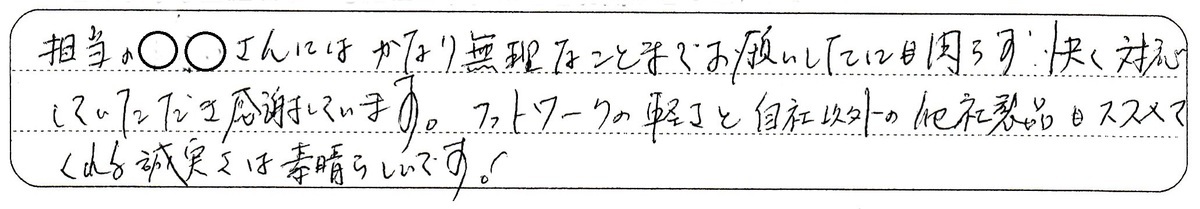 担当の○○さんにはかなり無理なことまでお願いしたにも関らず快く対応
していただき感謝しています。フットワークの軽さと自社以外の他社製品もススメて
くれる誠実さは素晴らしいです!